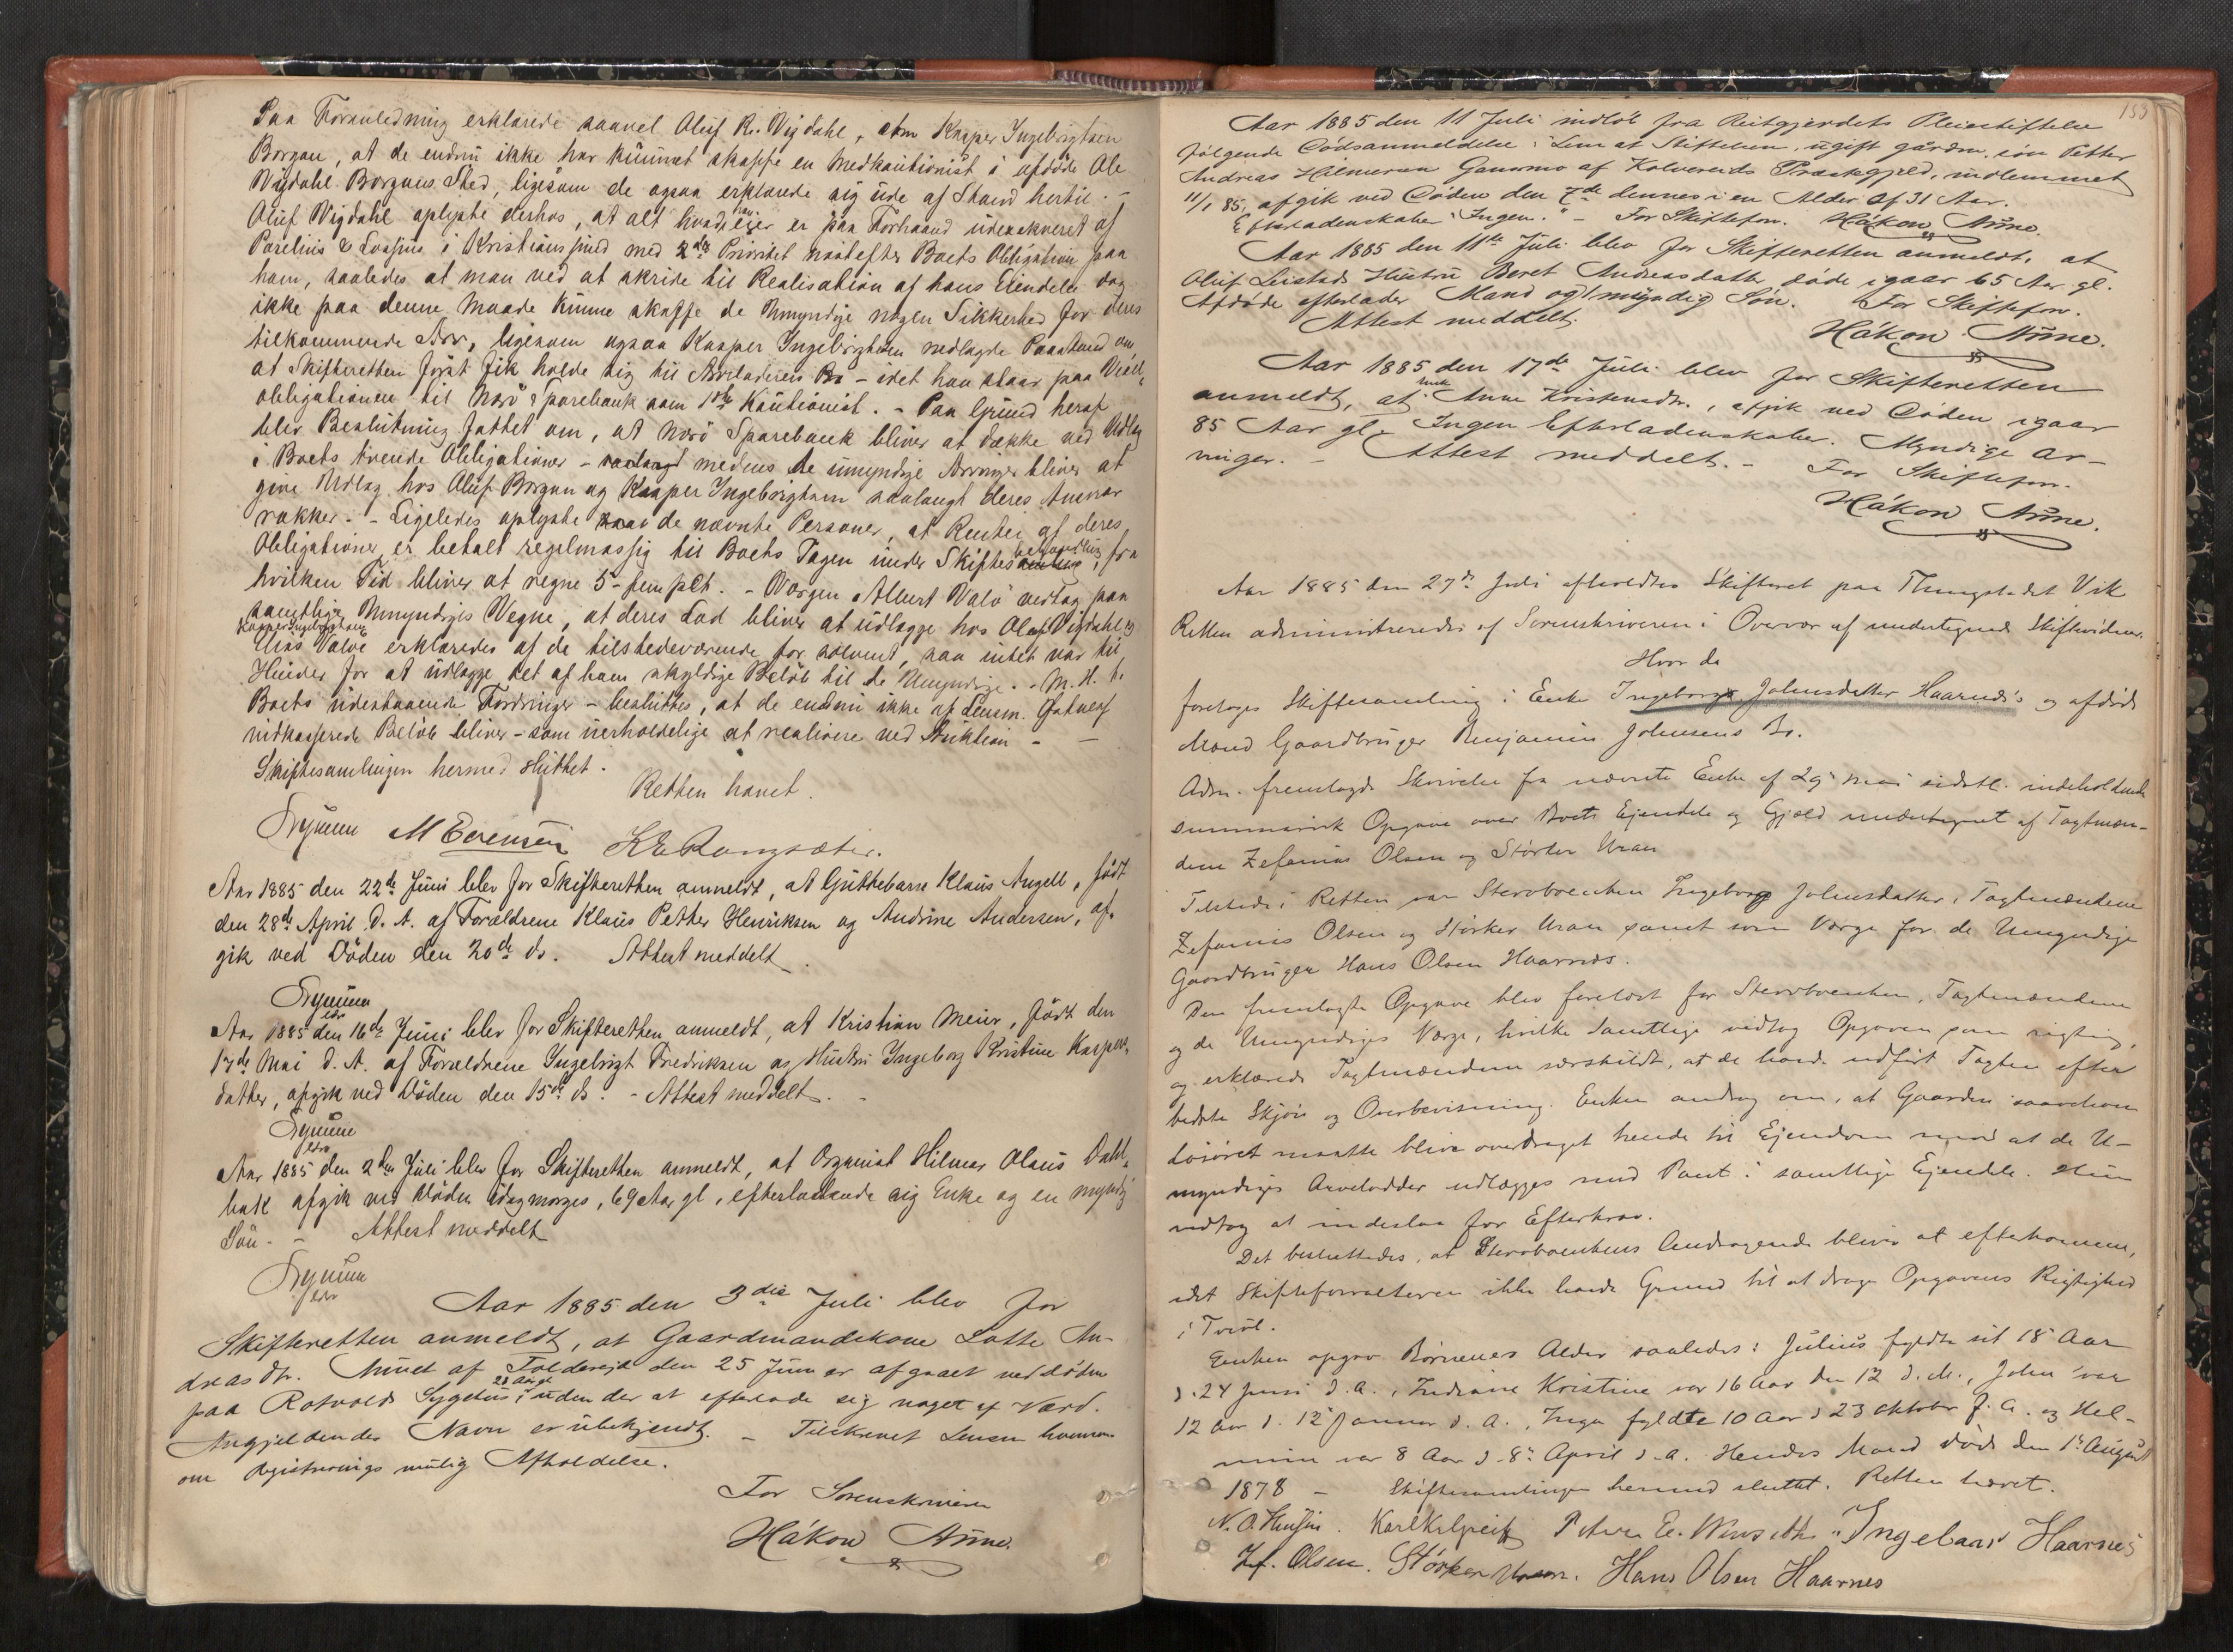 Paa Foranledning erklærede saavel Oluf R. Vigdahl, som Kasper Ingebrigtsen
Borgan, at de endnu ikke har kunnet skaffe en Medkautionist i afdøde Ole
Vigdahl Borgans Sted, ligesom de ogsaa erklærede sig ude af Stand hertil. -
Oluf Vigdahl oplyste derhos, at alt hvad han eier er paa Forhaand udexekveret af
i Kristianssund med 2den Prioritet næstefter Boets Obligation paa
ham, saaledes at man ved at skride til Realisation af hans Eiendele dog
ikke paa denne Maade kunne skaffe de Umyndige nogen Sikkerhed for deres
tilkommende Arv, ligesom ogsaa Kasper Ingebrigtsen nedlagde Paastand om
at Skifteretten først fik holde sig til Arveladerens Bo - idet han staar paa
obligationen til Nærø Sparebank som 1ste Kautionist. - Paa Grund heraf
blev Beslutning fattet om, at Nærø Sparebank bliver at dække ved Udlæg
i Boets tvende Obligationer - medens de umyndige Arvinger bliver at
give Udlæg hos Oluf Borgan og Kasper Ingebrigtsen saalangt deres Ansvar
rækker. - Ligeledes oplyste de nævnte Personer, at Renter af deres
Obligationer er betalt regelmæssig til Boets Tagen under Skiftes behandling, fra
hvilken Tid bliver at regne 5 - fem pCt. - Værgen Albert Valø vedtog paa
samtlige Umyndiges Vegne, at deres Lod bliver at udlægge hos Oluf Vigdahl og
Kasper Ingebrigtsen
Elias Valøe erklæredes af de tilstedeværende for solvent, saa intet var til
Hinder for at udlægge det af ham skyldige Beløb til de Umyndige. - M. H. t.
Boets udestaaende Fordringer - besluttes, at de endnu ikke af Lensm.
indkasserede Beløb bliver - som uerholdelige at realisere ved Auktion -
Skiftesamlingen hermed sluttet.
Retten hævet.
M Evensen
Aar 1885 den 22de Juni blev for Skifteretten anmeldt, at Guttebarn Klaus Angell, født
den 28de April d. A. af Forældrene Klaus Petter Henriksen og Andrine Andersen, af-
gik ved Døden den 20de ds. Attest meddelt.
Aar 1885 den 16de Juni blev for Skifteretten anmeldt, at Kristian Meier, født den
17de Mai d. A. af Forældrene Ingebrigt Fredriksen og Hustru Ingeborg Kristine Kaspers-
datter, afgik ved Døden den 15de ds. - Attest meddelt. -
Aar 1885 den 2den Juli blev for Skifteretten anmeldt, at Organist Hilmar Olaus Dahl-
bak afgik ved Døden idagmorges, 69 Aar gl, efterladende sig Enke og en myndig
Søn. - Attest meddelt
Aar 1885 den 3die Juli blev for
Skifteretten anmeldt, at Gaardmandskone Lotte An-
dreasdtr. af Foldereid den 25 Juni er afgaaet ved døden
28 Aar gl
paa Rotvolds Sygehus, uden der at efterlade sig noget af Værd.
Angjeldendes Navn er ubekjendt. - Tilskrevet Lensm
om Registrerings mulig Afholdelse.
For Sorenskriveren
Håkon Aune.
153
Aar 1885 den 11 Juli indløb fra Reitgjerdets Pleiestiftelse
følgende Dødsanmeldelse: Lem at Stiftelsen, ugift gårdm. søn Petter
Andreas Hilmersen Gansmo af Kolvereids Præstegjeld, indlemmet
11/1 85, afgik ved Døden den 7de dennes i en Alder af 31 Aar.
Efterladenskaber "Ingen." - For Skifteforv. Håkon Aune.
Aar 1885 den 11te Juli blev for Skifteretten anmeldt, at
Oluf Leistads Hustru Beret Andreasdatter døde igaar 65 Aar gl.
Afdøde efterlader Mand og 1 myndig Søn. For Skifteforv.
Attest meddelt. Håkon Aune.
Aar 1885 den 17de Juli blev for Skifteretten
anmeldt, at Enke Anne Kristensdtr., afgik ved Døden igaar
85 Aar gl. Ingen Efterladenskaber. Myndige Ar-
vinger. - Attest meddelt. - For Skifteforv.
Håkon Aune.
Aar 1885 den 27de Juli afholdtes Skifteret paa Thingstedet Vik
Retten administreredes af Sorenskriveren i Overvær af undertegnede Skiftevidner.
Hvor da
foretoges Skiftesamling i Enke Ingeborg Johnsdatter Haarnæs's og afdøde
Mand Gaardbruger Benjamin Johnsens Bo.
Adm. fremlagde Skrivelse fra nævnte Enke af 29 Mai sidstl. indeholdende
summarisk Opgave over Boets Ejendele og Gjæld undertegnet af Tagtmæn-
dene Zefanias Olsen og Størker Uran
Tilstede i Retten var Stervboenken Ingeborg Johnsdatter, Tagtmændene
Zefanias Olsen og Størker Uran samt som Værge for de Umyndige
Gaardbruger Hans Olsen Haarnæs.
Den fremlagte Opgave blev forelæst for Stervboenken, Tagtmændene
og de Umyndiges Værge, hvilke samtlige vedtog Opgaven som rigtig,
og erklærede Tagtmændene særskildt, at de havde udført Tagten efter
bedste Skjøn og Overbevisning. Enken androg om, at Gaarden saavelsom
Løsøret maatte blive overdraget hende til Ejendom mod at de U-
myndiges Arvelodder udlægges med Pant i samtlige Ejendele. Hun
vedtog at indestaa for Efterkrav.
Det besluttedes, at Stervboenkens Andragende bliver at efterkomme,
idet Skifteforvalteren ikke havde Grund til at drage Opgavens Rigtighed
i Tvivl.
Enken opgav Børnenes Alder saaledes: Julius fyldte sit 18 Aar
d. 24 Juni d. A., Indiane Kristine var 16 Aar den 12 d. M., John var
12 Aar d. 12 Januar d. A., Inga fyldte 10 Aar d 23 Oktober f. A. og Hel-
mine var 8 Aar d. 8de April d. A. Hendes Mand døde den 1ste August
1878 - Skiftesamlingen hermed sluttet. Retten hævet.
Ingebaar Haarnes
Zef. Olsen. Størker Uran. Hans Olsen Haarnes